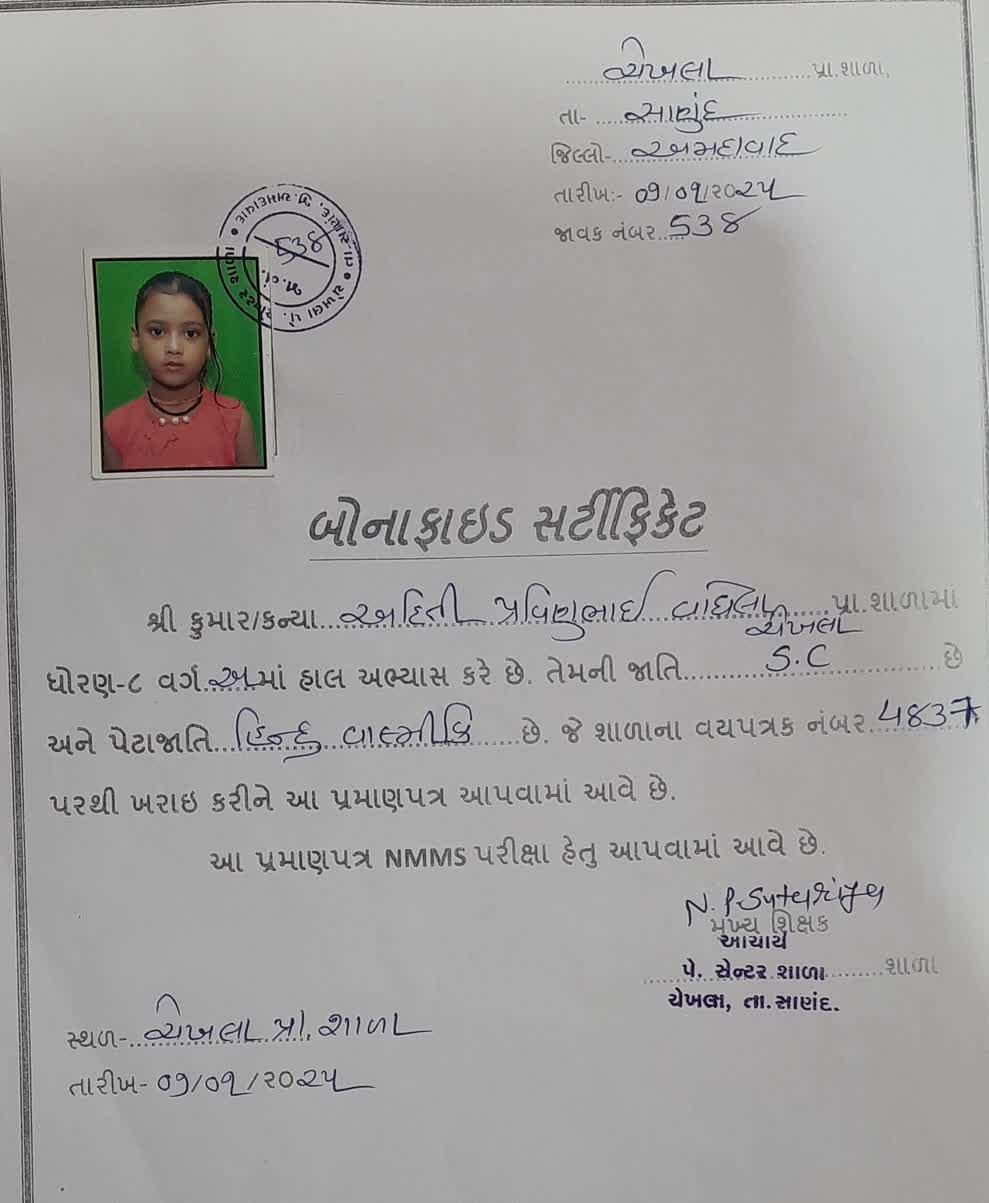 ચેખલા પ્રા.શાળા,
તા- સાણંદ
જિલ્લો- અમદાવાદ
તારીખ:- ૦૧/૦૧/૨૦૨૫
જાવક નંબર..538
ચેખલા પે. સેન્ટર શાળા • તા.સાણંદ, જી.અમદાવાદ •
જા.નં.
538
બોનાફાઇડ સર્ટીફિકેટ
શ્રી કુમાર/કન્યા...અદિતી પ્રવિણભાઈ વાઘેલા.....પ્રા.શાળામાં
ચેખલા
ધોરણ-૮ વર્ગ..અ.માં હાલ અભ્યાસ કરે છે. તેમની જાતિ.....S.C.....છે
અને પેટાજાતિ..હિન્દુ વાલ્મીકિ.....છે. જે શાળાના વયપત્રક નંબર..4837
પરથી ખરાઇ કરીને આ પ્રમાણપત્ર આપવામાં આવે છે.
આ પ્રમાણપત્ર NMMS પરીક્ષા હેતુ આપવામાં આવે છે.
મુખ્ય શિક્ષક
આચાર્ય
પે. સેન્ટર શાળા.......શાળા
ચેખલા, તા.સાણંદ.
સ્થળ-..ચેખલા પ્રા. શાળા
તારીખ- ૦૧/૦૧/૨૦૨૫